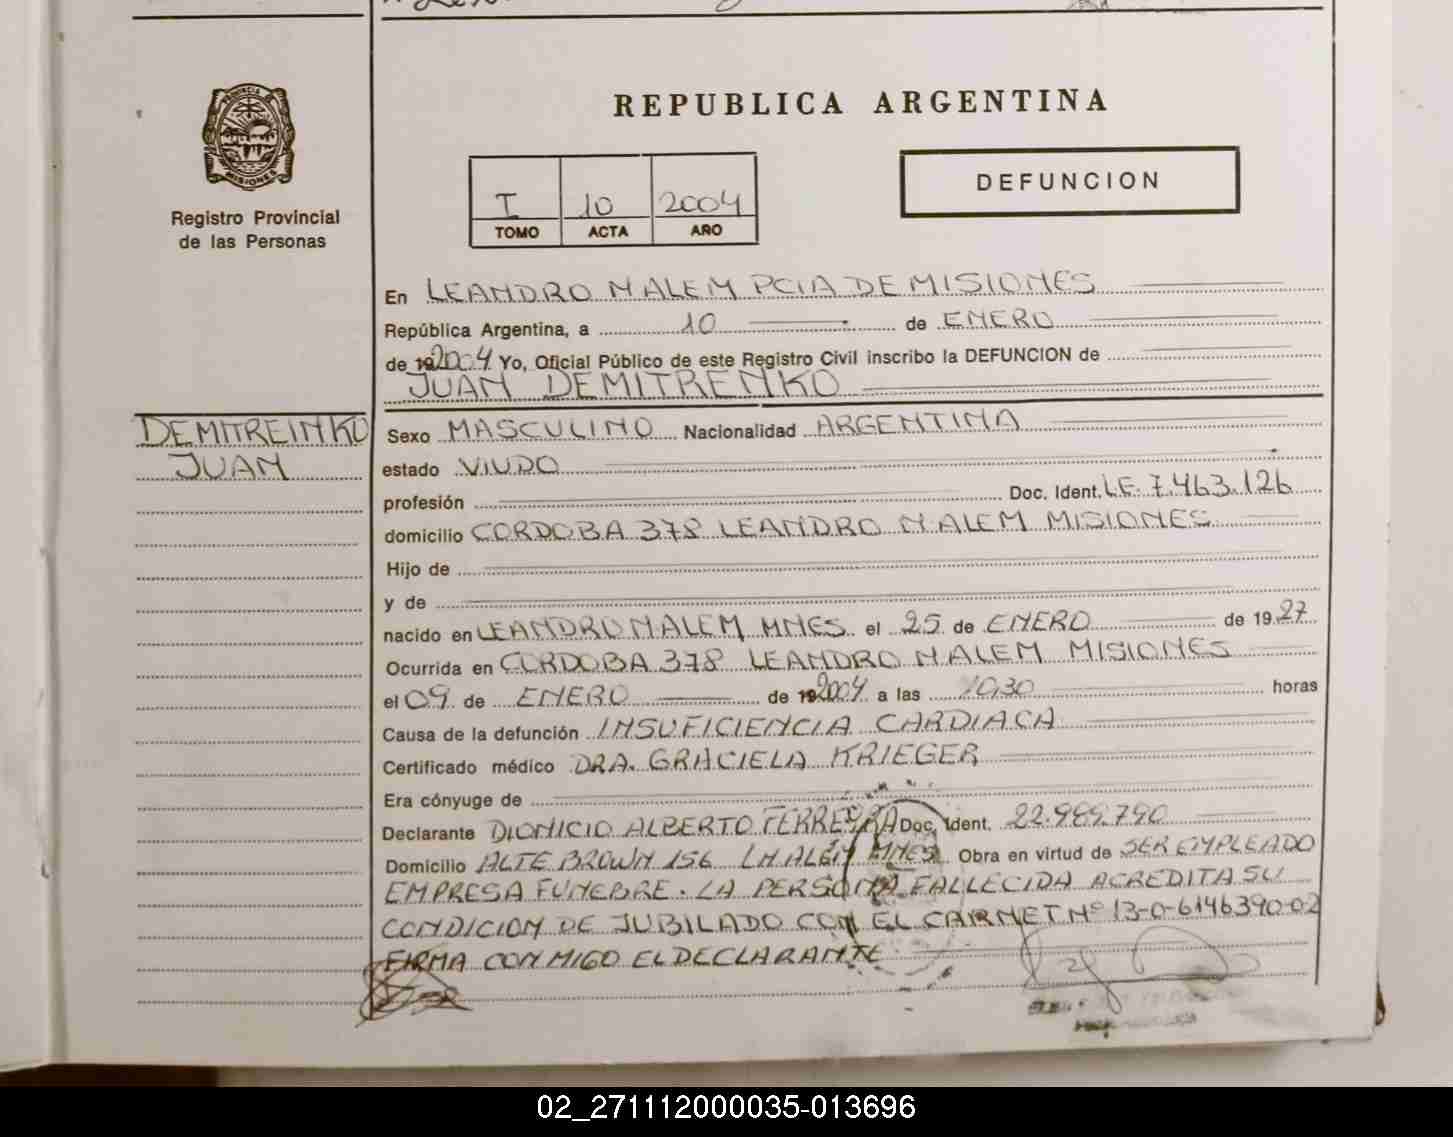 REPUBLICA ARGENTINA
PROVINCIA DE
MISIONES
Registro Provincial
de las Personas
I 10 2004
TOMO ACTA AÑO
DEFUNCION
En LEANDRO N ALEM PCIA DE MISIONES
República Argentina, a 10 de ENERO
de 192004 Yo, Oficial Público de este Registro Civil inscribo la DEFUNCION de
JUAN DEMITRENKO
DEMITREINKO
JUAN
Sexo MASCULINO Nacionalidad ARGENTINA
estado VIUDO
profesión Doc. Ident. LE. 7.463.126
domicilio CORDOBA 378 LEANDRO N ALEM MISIONES
Hijo de
y de
nacido en LEANDRO N ALEM MNES el 25 de ENERO de 1927
Ocurrida en CORDOBA 378 LEANDRO N ALEM MISIONES
el 09 de ENERO de 192004 a las 10,30 horas
Causa de la defunción INSUFICIENCIA CARDIACA
Certificado médico DRA. GRACIELA KRIEGER
Era cónyuge de
Declarante DIONICIO ALBERTO FERREYRA Doc. Ident. 22.989.790
Domicilio ALTE BROWN 156 LN ALEM MNES Obra en virtud de SER EMPLEADO
EMPRESA FUNEBRE. LA PERSONA FALLECIDA ACREDITA SU
CONDICION DE JUBILADO CON EL CARNET Nº 13-0-6146390-02
FIRMA CONMIGO EL DECLARANTE
02_271112000035-013696